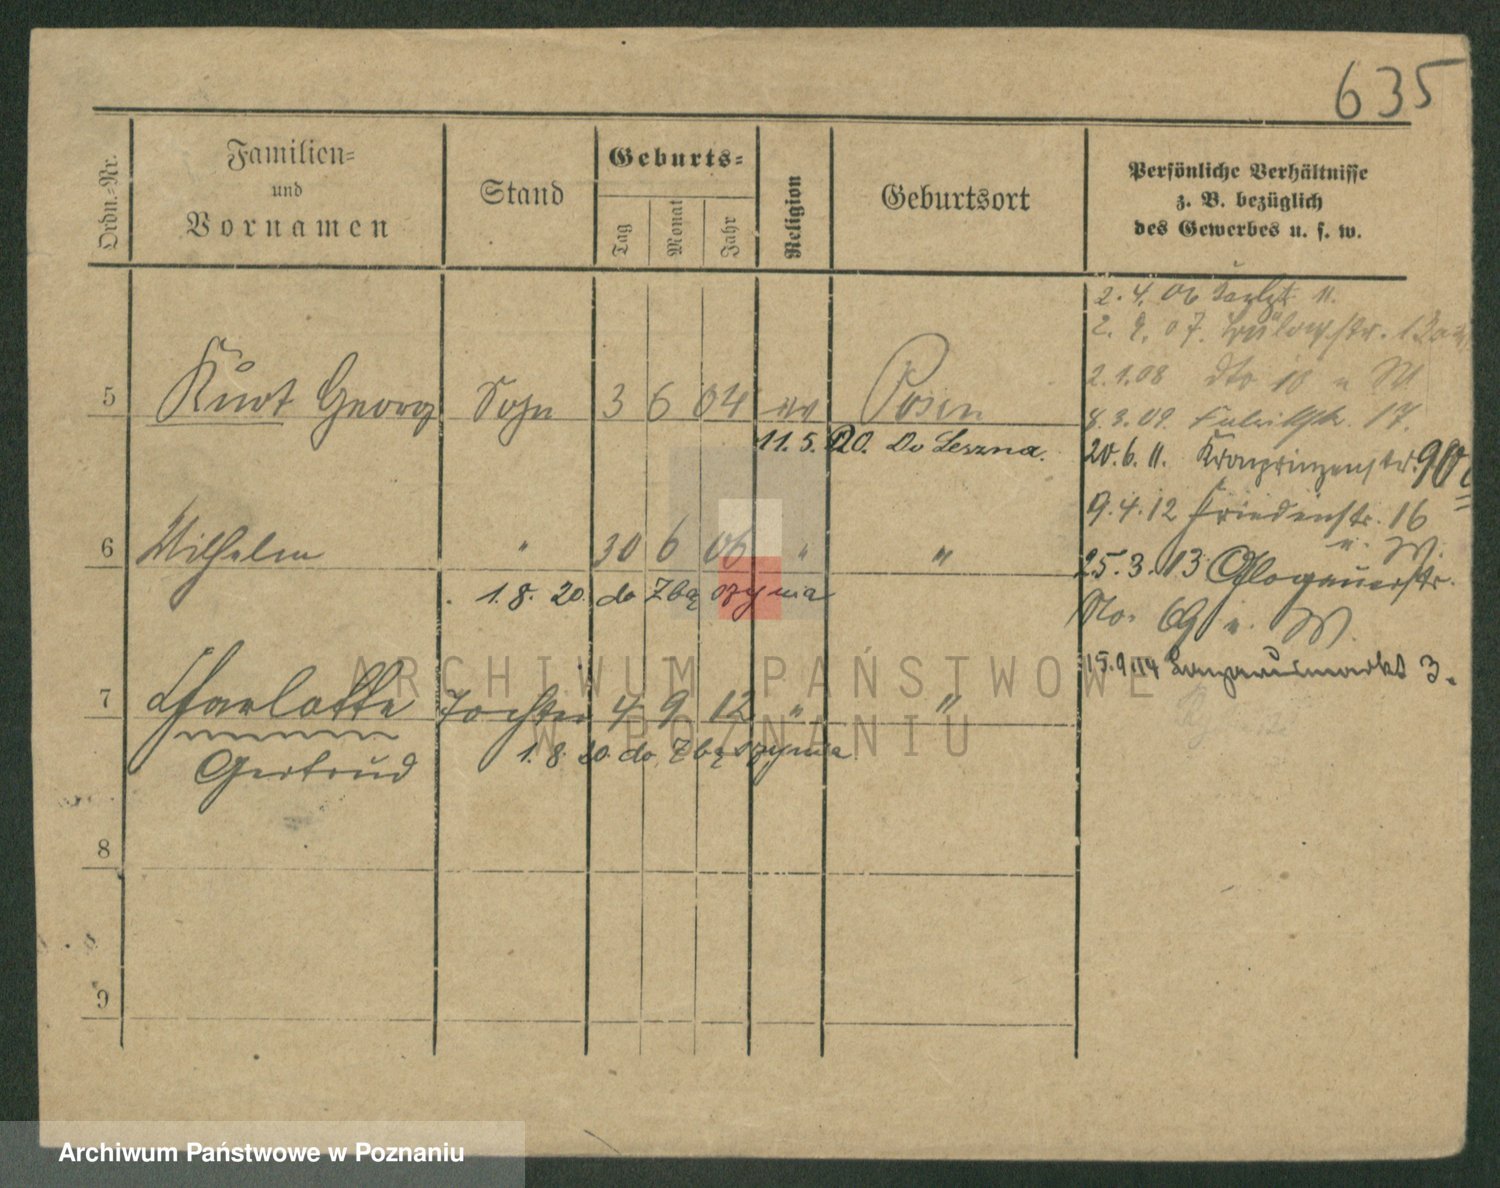 635
Ordn.-Nr.
Familien-
und
Vornamen
Stand
Geburts-
Tag
Monat
Jahr
Religion
Geburtsort
Persönliche Verhältnisse
z. B. bezüglich
des Gewerbes u. s. w.
5 Kurt Georg Sohn 3 6 04 ev Posen
11.5.20. Do Leszna.
6 Wilhelm " 30 6 06 " "
1.8.20. do Zbąszynia
7 Charlotte Tochter 4 9 12 " "
Gertrud
1.8.20. do Zbąszynia
8
9
2.4.06 11.
2. 07. Bülowstr.
2.1.08 dto 10 u W
8.3.09. 17.
20.6.11. Kronprinzenstr. 90
9.4.12 Friedenstr. 16
u. W.
25.3.13 Glogauerstr.
No. u. W.
15.9.14 3.
ARCHIWUM PAŃSTWOWE
W POZNANIU
Archiwum Państwowe w Poznaniu